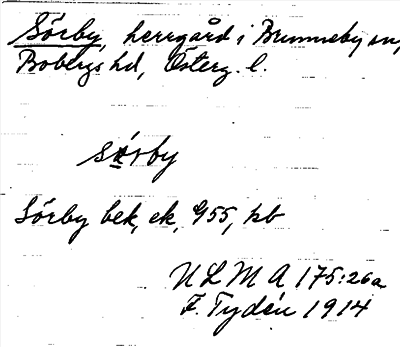 Sörby, herrgård i Brunneby sn,
Bobergs hd, Österg. l.
sörby
Sörby bek, ek, 955, kb
ULMA 175:26a
F. Tydén 1914